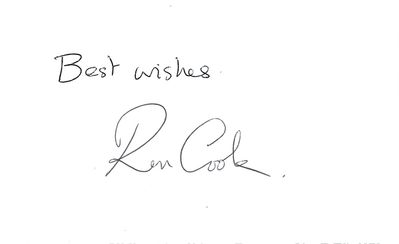 Best wishes
Ron Cook.